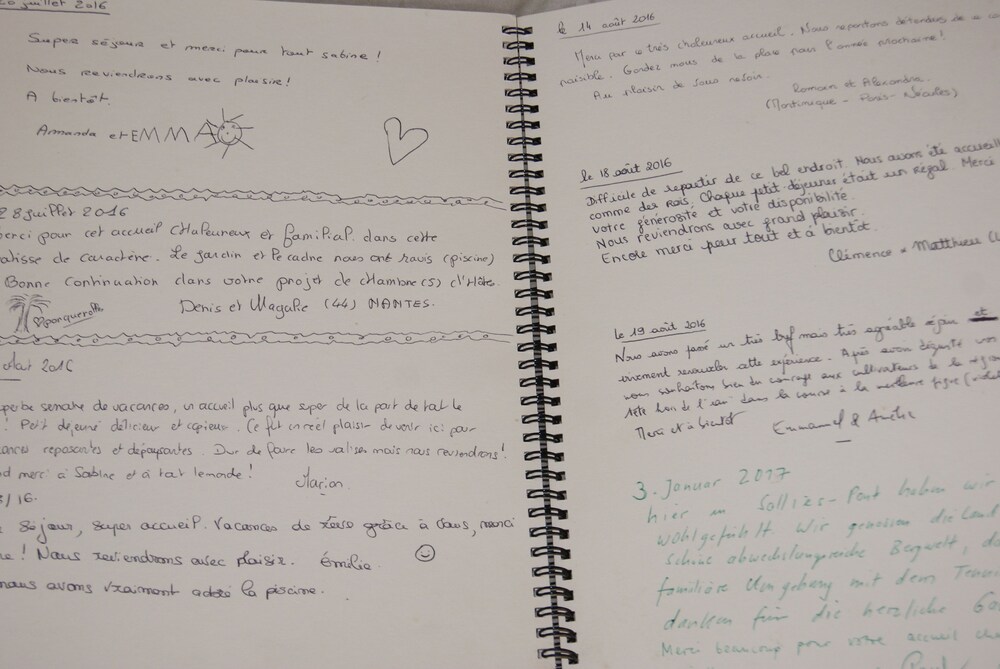 juillet 2016
Super séjour et merci pour tout Sabine !
Nous reviendrons avec plaisir !
A bientôt.
Armanda et EMMA
28 juillet 2016
erci pour cet accueil chaleureux et familial dans cette
atisse de caractère. Le jardin et le cadre nous ont ravis (piscine)
Bonne continuation dans votre projet de chambre(s) d'Hôte.
porquerolles
Denis et Magalie (44) NANTES.
août 2016
perbe semaine de vacances, un accueil plus que super de la part de tout le
! Petit dejeuné délicieux et copieux. Ce fut un réel plaisir de venir ici pour
ances reposantes et dépaysantes. Dur de faire les valises mais nous reviendrons !
d merci à Sabine et à tout le monde !
Marion.
/16.
séjour, super accueil. Vacances de rêve grâce à vous, merci
e ! Nous reviendrons avec plaisir. émilie.
nous avons vraiment adoré la piscine.
le 14 août 2016
Merci par ce très chaleureux accueil. Nous repartons détendues de ce
paisible. Gardez nous de la place pour l'année prochaine !
Au plaisir de vous revoir.
Romain et Alexandra.
(Martinique - Paris - )
le 18 août 2016
Difficile de repartir de ce bel endroit. Nous avons été accueilli
comme des rois. Chaque petit déjeuner était un régal. Merci
votre générosité et votre disponibilité.
Nous reviendrons avec grand plaisir.
Encore merci pour tout et à bientôt.
Clémence & Matthieu
le 19 août 2016
Nous avons passé un très bref mais très agréable séjour et
vivement renouveler cette expérience. Après avoir dégusté vos
vous souhaitons bien du courage aux cultivateurs de la région
tête hors de l'eau dans la course à la meilleure figue
Merci et à bientôt
Emmanuel &
3. Januar 2017
hier in Solliès-Pont haben wir
wohlgefühlt. Wir genossen die
schöne abwechslungsreiche Bergwelt, da
familiäre Umgebung mit dem
danken für die herzliche
Merci beaucoup pour votre accueil